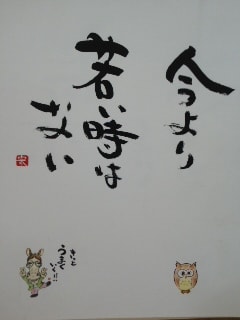 今より
若い時は
ない
きっと
うまく
いく!!